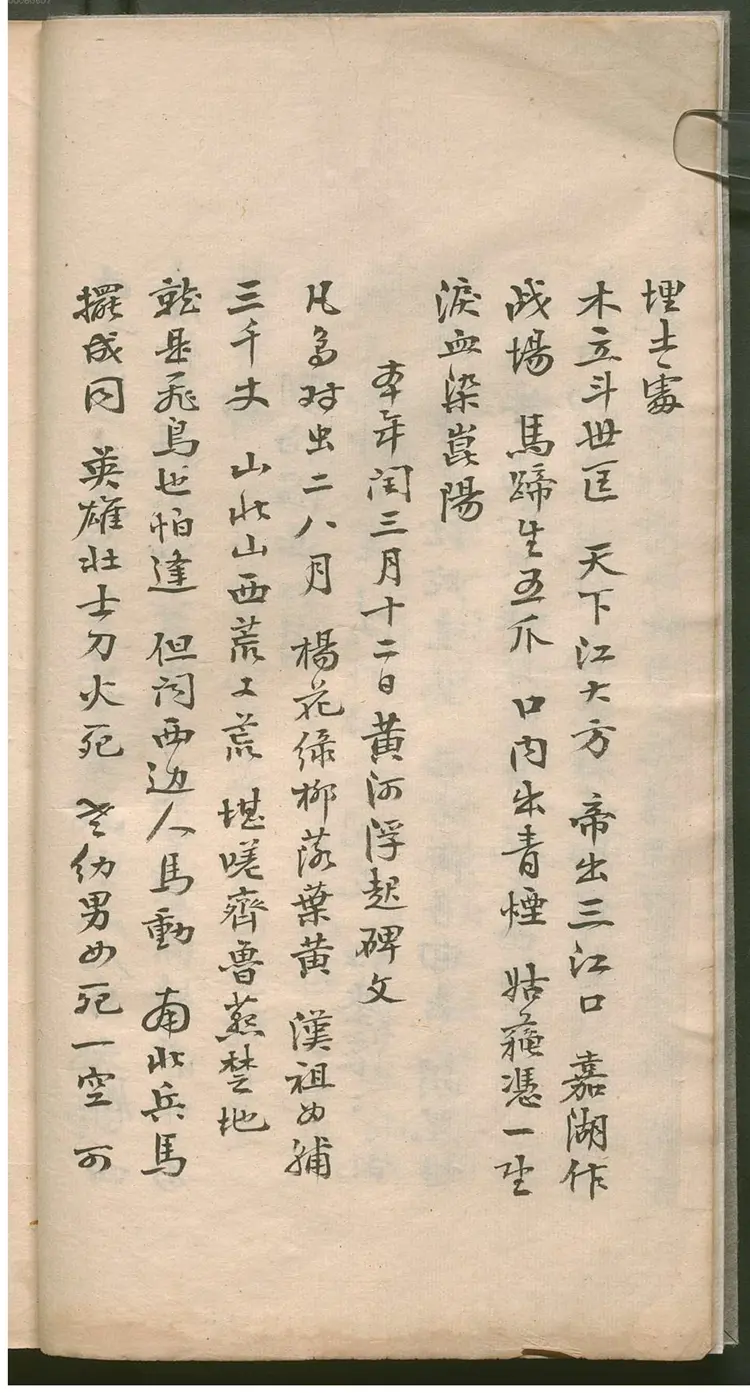 埋土處
木立斗世匡 天下江大方 帝出三江口 嘉湖作
战場 馬蹄生五爪 口內出青煙 姑蘓憑一望
淚血染崑陽
本年闰三月十二日黄河浮起碑文
凡鳥对虫二八月 楊花绿柳落葉黄 漢祖女補
三千丈 山北山西荒又荒 堪嗟齊魯燕楚地
就是飛鳥也怕逢 但闻西边人馬動 南北兵馬
擺成同 英雄壮士刀火死 老幼男女死一空 可